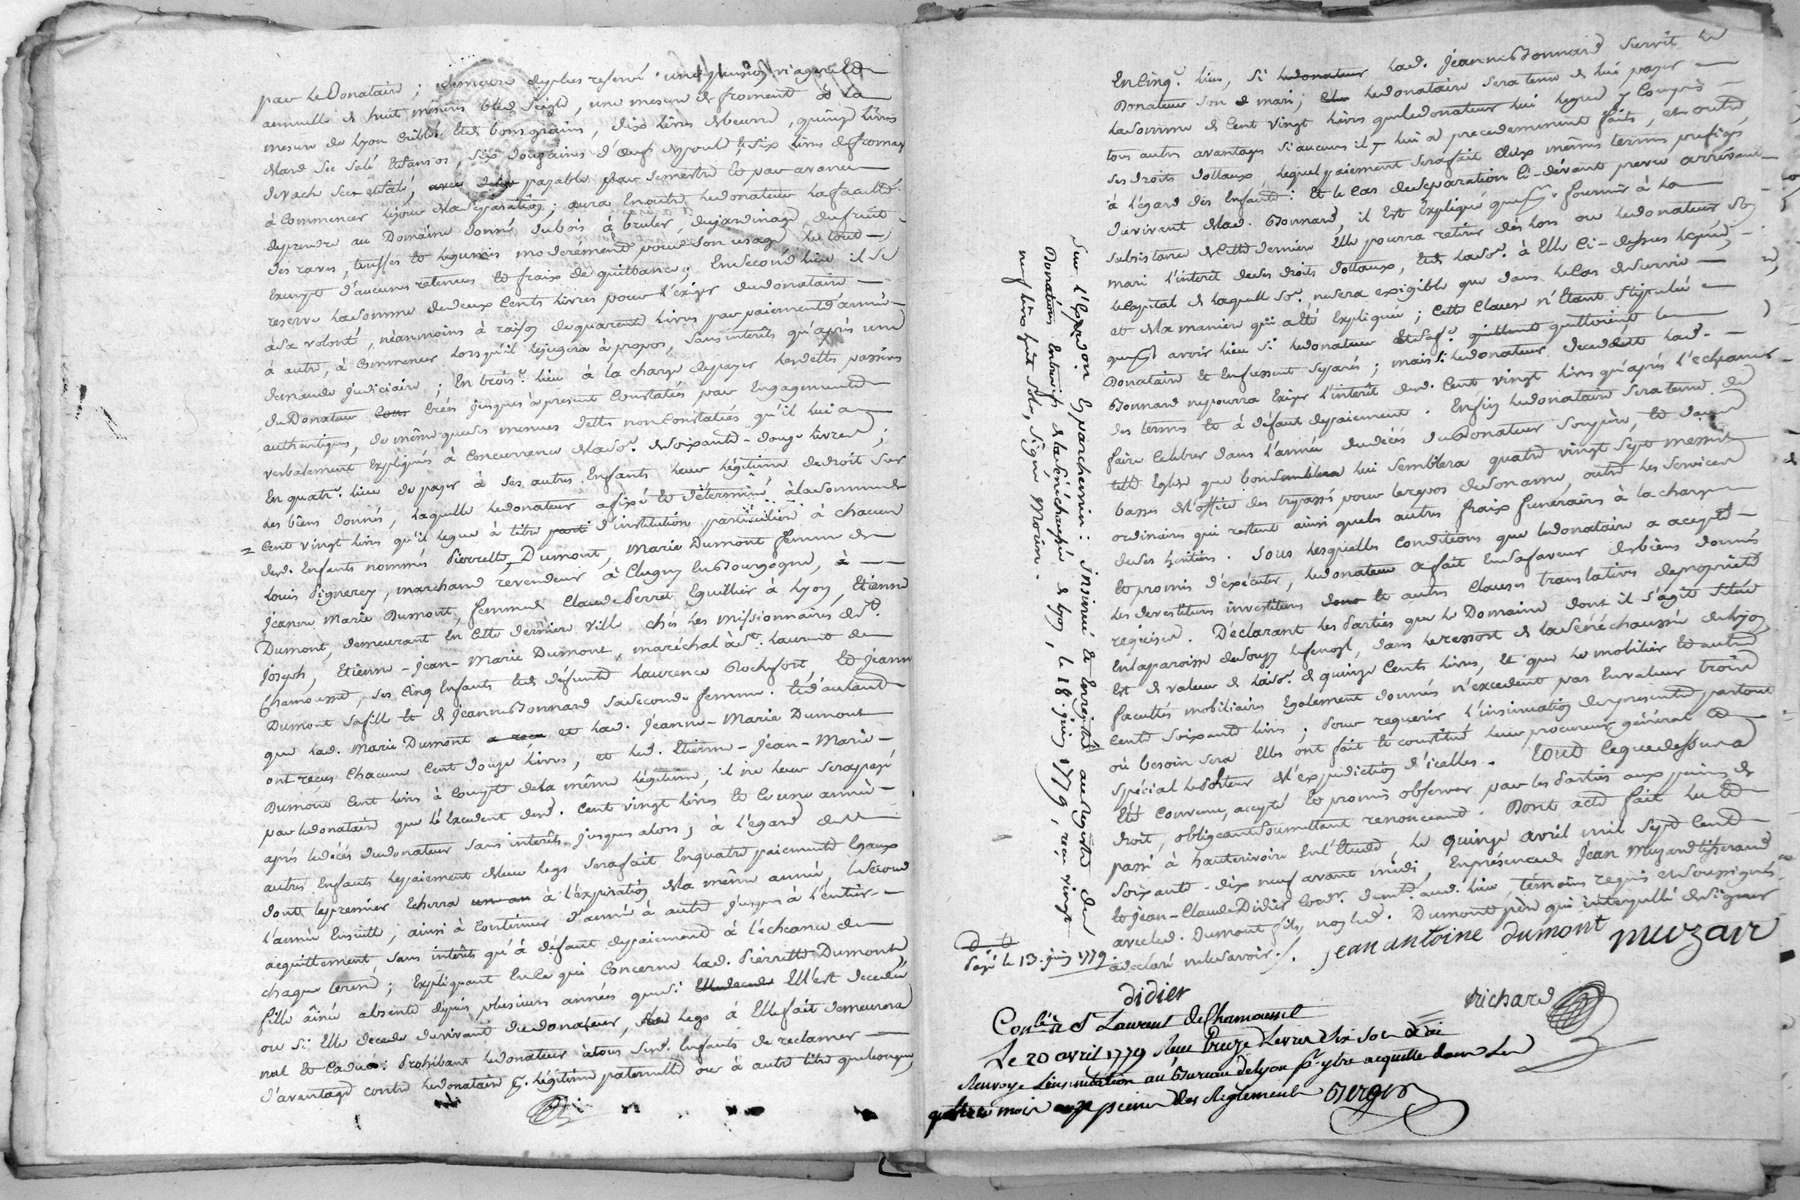 par le Donataire; demeure de plus reservé une pension viagere &
annuelle de huit mesures bled seigle, une mesure de froment à la
mesure de Lyon criblés et de bons grains, dix livres de beurre, quinze livres
de lard sec salé, six douzaines d'œufs de poule & six livres de fromage
de vache sec et salé, payable par semestre et par avance
à commencer le jour de la separation; aura en outre le donateur la faculté
de prendre au Domaine donné du bois à bruler, du jardinage, du fruit
des raves, truffes et legumes moderément pour son usage, le tout
exempt d'aucunes retenues et frais de quittance; En second lieu il se
reserve la somme de deux cents livres pour l'exiger du donataire
à sa volonté, néanmoins à raison de quarante livres par paiement d'année
à autre, à commencer lorsqu'il le jugera à propos, sans interêts qu'après une
demande judiciaire; En trois.e lieu à la charge de payer les dettes passives
du Donateur créés jusques à present constatées par engagements
authentiques, de même que les menues dettes non constatées qu'il lui a
verbalement expliqués à concurrence de la so.e de soixante-douze livres;
En quatr.e lieu de payer à ses autres enfants leur légitime de droit sur
les biens donnés, laquelle le donateur a fixé et déterminé à la somme de
cent vingt livres qu'il legue à titre d'institution particuliere à chacun
desd. Enfants nommés Pierrette Dumont, Marie Dumont femme de
Louis Pignerey, marchand revendeur à Clugny en Bourgogne, à
Jeanne Marie Dumont, femme de Claude Perret Eguillier à Lyon, Etienne
Dumont, demeurant en cette derniere ville chés les missionnaires de St.
Joseph, Etienne-Jean-Marie Dumont, maréchal à St. Laurent de
Chamousset, ses cinq enfants et de défunte Laurence Rochefort, et Jeanne
Dumont sa fille et de Jeanne Bonnard sa seconde femme. Et d'autant
que lad. Marie Dumont et lad. Jeanne-Marie Dumont
ont reçus chacune cent douze livres, et led. Etienne-Jean-Marie
Dumont cent livres à compte de la même légitime, il ne leur sera payé
par le donataire que l'excedent desd. cent vingt livres et ce une année
après le décès du donateur sans interêts jusques alors; à l'égard des
autres enfants le paiement de leur legs sera fait en quatre paiements egaux
dont le premier echerra à l'expiration de la même année, le second
l'année ensuitte; ainsi à continuer d'année à autre jusques à l'entier
acquittement sans interêts qu'à défaut de paiement à l'échéance de
chaque terme; Expliquant en ce qui concerne lad. Pierrette Dumont
fille aînée absente depuis plusieurs années que si elle est decedée
ou si elle decede du vivant du donateur, legs à elle fait demeurera
nul et caduc: Prohibant le donateur à tous sesd. Enfants de reclamer
d'avantage contre le donataire p.r légitime paternelle ou à autre titre quelconque
En cinq.e lieu, si lad. Jeanne Bonnard survit le
Donateur son d. mari; le donataire sera tenu de lui payer
la somme de cent vingt livres que le donateur lui legue y compris
tous autres avantages si aucuns il lui a precedemment faits, et outre
ses droits dottaux, lequel paiement sera fait aux mêmes termes prefigés
à l'égard des Enfants: Et le cas de separation ci-devant prevu arrivant
du vivant de lad. Bonnard, il est expliqué que p.r fournir à la
subsistance de cette derniere elle pourra retirer dès lors ou le donateur son
mari l'interêt de ses droits dottaux, et de la so.e à elle ci-dessus leguée,
le capital de laquelle so.e ne sera exigible que dans le cas de survie
et de la maniere qu'il a été expliquée; cette clause n'étant stipulée
avoir lieu si le donateur et sa f.e quittoient le
Donataire et en fussent separés; mais si le donateur decedoit lad.
Bonnard ne pourra exiger l'interêt desd. cent vingt livres qu'après l'echeance
des termes et à défaut de paiement. Enfin le donataire sera tenu de
faire celebrer dans l'année du décès du Donateur son père, et dans
telle Eglise que bon lui semblera quatre vingt sept messes
basses de l'office des trépassés pour le repos de son ame, outre les services
ordinaires qui restent ainsi que les autres fraix funeraires à la charge
de ses héritiers. Sous lesquelles conditions que le donataire a accepté
et promis d'exécuter, le donateur a fait en sa faveur des biens donnés
les devestitures investitures et autres clauses translatives de proprieté
requises. Déclarant les Parties que le Domaine dont il s'agit situé
en la paroisse de Souzy, dans le ressort de la Sénéchaussée de Lyon
est de valeur de la so.e de quinze cents livres, et que le mobilier et autres
facultés mobiliaires egalement donnés n'excedent pas en valeur trois
cents soixante livres; pour requerir l'insinuation des presentes partout
où besoin sera elles ont fait et constitué leur procureur général &
spécial le porteur de l'expedition d'icelles. Tout ce que dessus a
été convenu, accepté et promis observer par les Parties aux peines de
droit, obligeant soumettant renonceant. Dont acte fait lu et
passé à hauterivoire en l'Etude le quinze avril mil sept cent
soixante-dix neuf avant midi, en présence de Jean Muzard tisserand
et Jean-Claude Didier demt. aud. lieu témoins requis et soussignés
avec led. Dumont fils, non led. Dumont père qui interpellé de signer
a declaré ne le savoir./.
jean antoine dumont muzair
didier
Richard
Conlé à St Laurent de Chamousset
Le 20 avril 1779 Reçu treize Livres dix sols
Renvoyé L'insinuation au Bureau de Lyon pr y être acquittée dans les
quatre mois aux peines des Reglements Berger
Payé le 13. juin 1779.
Sur l'Expedion. En parchemin: insinué & Enregistré au registre des
Donations Entrevifs de la Sénéchaussée de Lyon, le 18. juin 1779, reçu vingt
neuf livres huit sols, signé Morin.